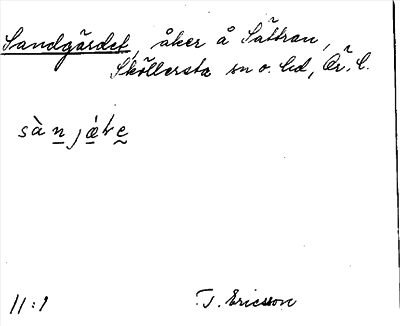 Sandgärdet, åker å Sättran,
Sköllersta sn o. hd, Ör. l.
sà n j ǽ t e
11:1 T. Ericsson